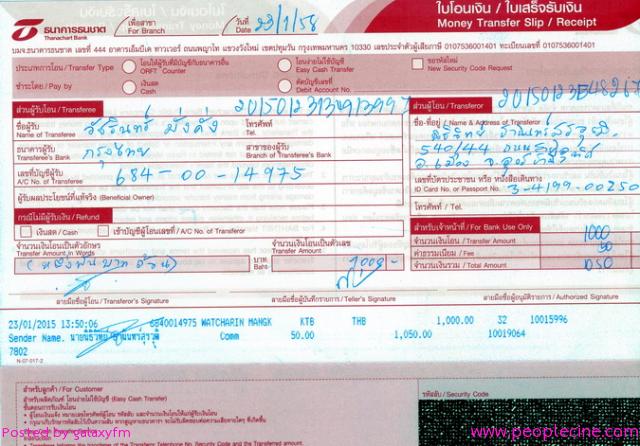 ธนาคารธนชาต
Thanachart Bank
เพื่อสาขา
For Branch
วันที่
Date
23/1/58
ใบโอนเงิน / ใบเสร็จรับเงิน
Money Transfer Slip / Receipt
บมจ.ธนาคารธนชาต เลขที่ 444 อาคารเอ็มบีเค ทาวเวอร์ ถนนพญาไท แขวงวังใหม่ เขตปทุมวัน กรุงเทพมหานคร 10330 เลขประจำตัวผู้เสียภาษี 0107536001401 ทะเบียนเลขที่ 0107536001401
ประเภทการโอน / Transfer Type
โอนให้ผู้รับที่มีบัญชีกับธนาคารอื่น
ORFT Counter
โอนง่ายไม่ใช้บัญชี
Easy Cash Transfer
ขอรหัสใหม่
New Security Code Request
ชำระโดย / Pay by
เงินสด
Cash
ตัดบัญชีเลขที่
Debit Account No.
ส่วนผู้รับโอน / Transferee
ส่วนผู้โอน / Transferor
ชื่อผู้รับ
Name of Transferee
วัชรินทร์ มั่งคั่ง
โทรศัพท์
Tel.
ชื่อ-ที่อยู่ / Name & Address of Transferor
540/44
ธนาคารผู้รับ
Transferee's Bank
กรุงไทย
สาขาของผู้รับ
Branch of Transferee's Bank
เลขที่บัญชีผู้รับ
A/C No. of Transferee
684-00-14975
เลขที่บัตรประชาชน หรือ หนังสือเดินทาง
ID Card No. or Passport No.
3-4199-00250
ผู้รับผลประโยชน์ที่แท้จริง (Beneficial Owner)
โทรศัพท์ / Tel.
กรณีไม่มีผู้รับเงิน / Refund
เงินสด / Cash
เข้าบัญชีผู้โอนเลขที่ / A/C No. of Transferor
สำหรับเจ้าหน้าที่ / For Bank Use Only
จำนวนเงินโอน / Transfer Amount 1000
ค่าธรรมเนียม / Fee 50
จำนวนเงินรวม / Total Amount 1050
จำนวนเงินโอนเป็นตัวอักษร
Transfer Amount in Words
จำนวนเงินโอนเป็นตัวเลข
Transfer Amount
(หนึ่งพันบาทถ้วน)
บาท
Baht
1000-
ลายมือชื่อผู้โอน / Transferor's Signature
ลายมือชื่อผู้บันทึกรายการ / Teller's Signature
ลายมือชื่อผู้อนุมัติรายการ / Authorized Signature
23/01/2015 13:50:06 6840014975 WATCHARIN MANGK KTB THB 1,000.00 32 10015996
Sender Name. Comm 50.00 1,050.00 10019064
7802
N-07-017-2
สำหรับลูกค้า / For Customer
สำหรับผลิตภัณฑ์ โอนง่ายไม่ใช้บัญชี (Easy Cash Transfer)
ขั้นตอนการรับเงินโอน
รหัสลับ / Security Code
Posted by galaxyfm
www.peoplecine.com